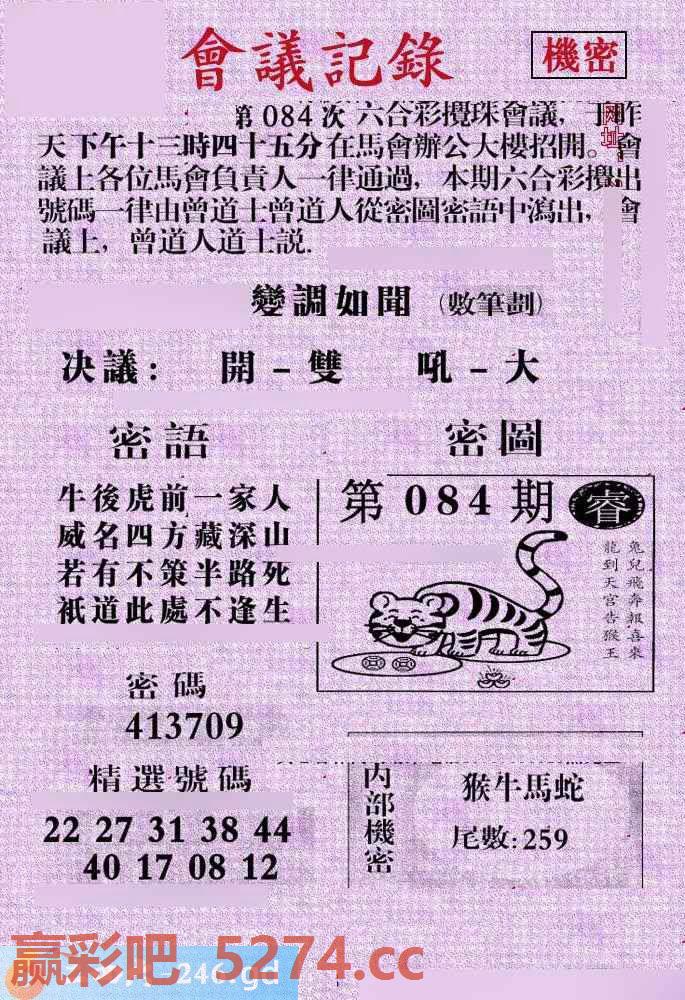 會議記錄
機密
第 084 次 六合彩攪珠會議，于昨
天下午十三時四十五分在馬會辦公大樓招開。會
議上各位馬會負責人一律通過，本期六合彩攪出
號碼一律由曾道士曾道人從密圖密語中瀉出，會
議上，曾道人道士説.
网址:
變調如聞 (數筆劃)
决議： 開－雙 吼－大
密語
牛後虎前一家人
威名四方藏深山
若有不策半路死
衹道此處不逢生
密圖
第 084 期 睿
兔兒飛奔報喜來
龍到天宮告猴王
密碼
413709
精選號碼
22 27 31 38 44
40 17 08 12
内部機密
猴牛馬蛇
尾數:259
赢彩吧 5274.cc
246.gd